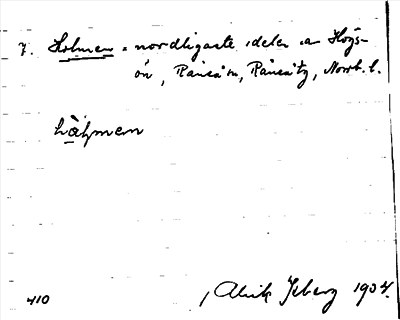 7. Holmen = nordligaste delen av Högs-
ön, Råneå sn, Råneå tg, Norrb. l.
hå̀ɫmen
410
Alrik Isberg 1904.